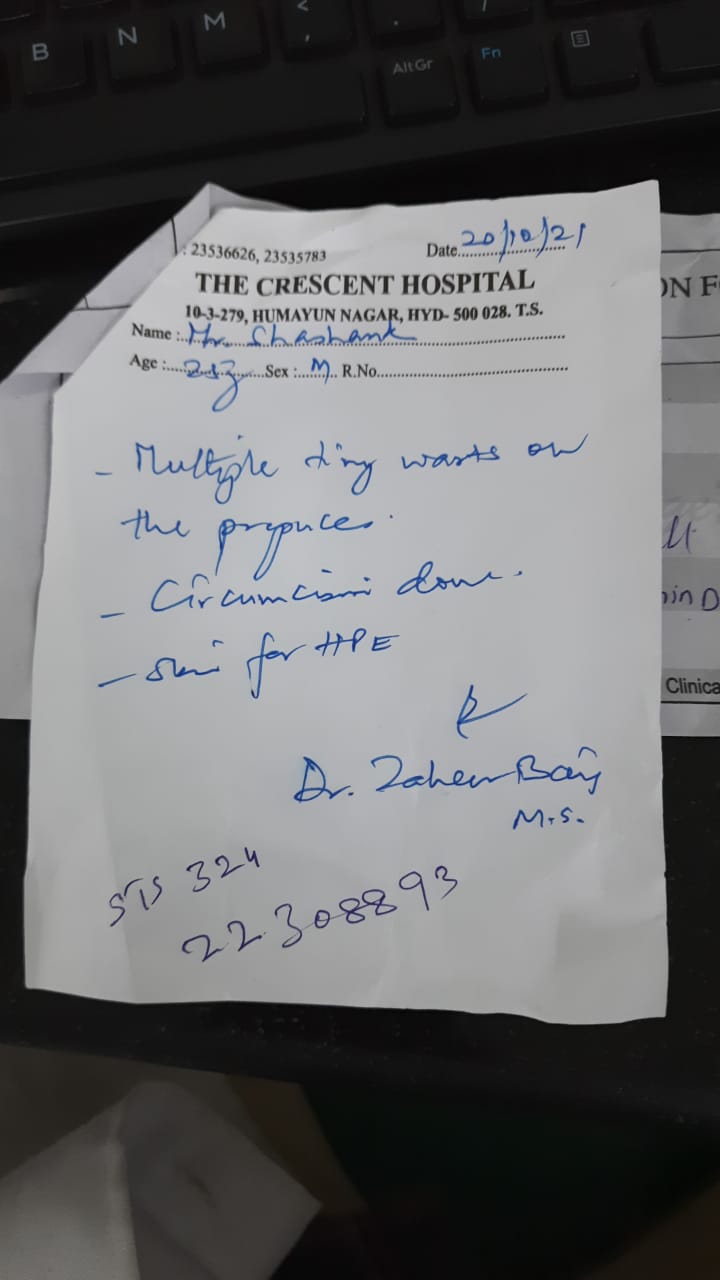 B N M < , . /
AltGr Fn
: 23536626, 23535783 Date 20/10/21
THE CRESCENT HOSPITAL
10-3-279, HUMAYUN NAGAR, HYD- 500 028. T.S.
Name : Mr. Shashank
Age : Sex : M R.No.
- Multiple tiny warts on
the prepuces.
- Circumcision done.
- Skin for HPE
Dr. Zaheer Baig
M.S.
STS 324
22308893
ON F
Clinica